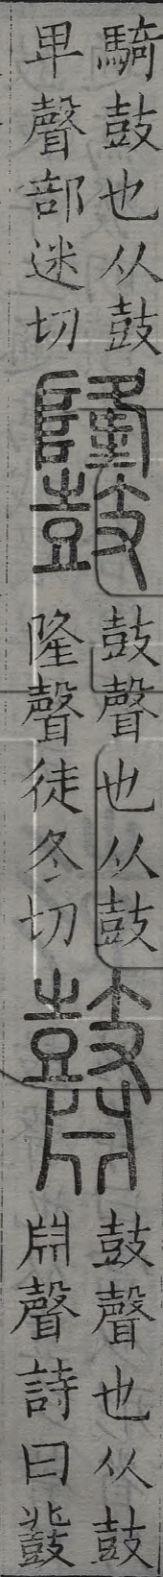 騎鼓也从鼓
卑聲部迷切
𪔳
鼓聲也从鼓
隆聲徒冬切
鼘
鼓聲也从鼓
𣶒聲詩曰鼗